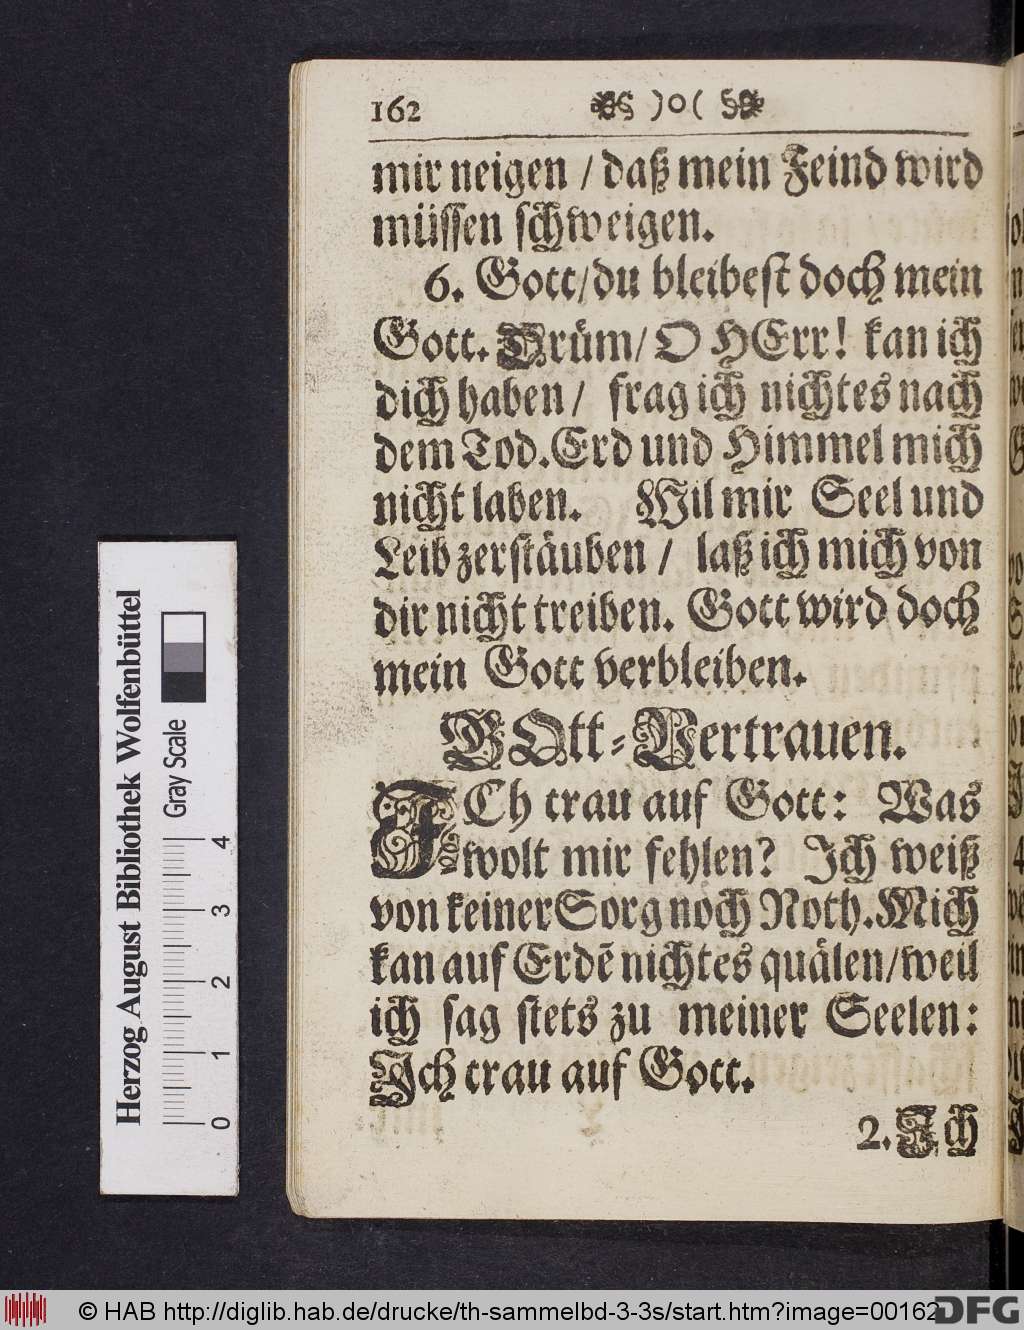 162 )o(
mir neigen / daß mein Feind wird
müssen schweigen.
6. Gott/du bleibest doch mein
Gott. Drüm/ O HErr! kan ich
dich haben / frag ich nichtes nach
dem Tod. Erd und Himmel mich
nicht laben. Wil mir Seel und
Leib zerstäuben / laß ich mich von
dir nicht treiben. Gott wird doch
mein Gott verbleiben.
GOtt-Vertrauen.
ICh trau auf Gott: Was
wolt mir fehlen? Ich weiß
von keiner Sorg noch Noth. Mich
kan auf Erdẽ nichtes quälen/weil
ich sag stets zu meiner Seelen:
Ich trau auf Gott.
2. Ich
Herzog August Bibliothek Wolfenbüttel
Gray Scale
0 1 2 3 4
© HAB http://diglib.hab.de/drucke/th-sammelbd-3-3s/start.htm?image=00162
DFG